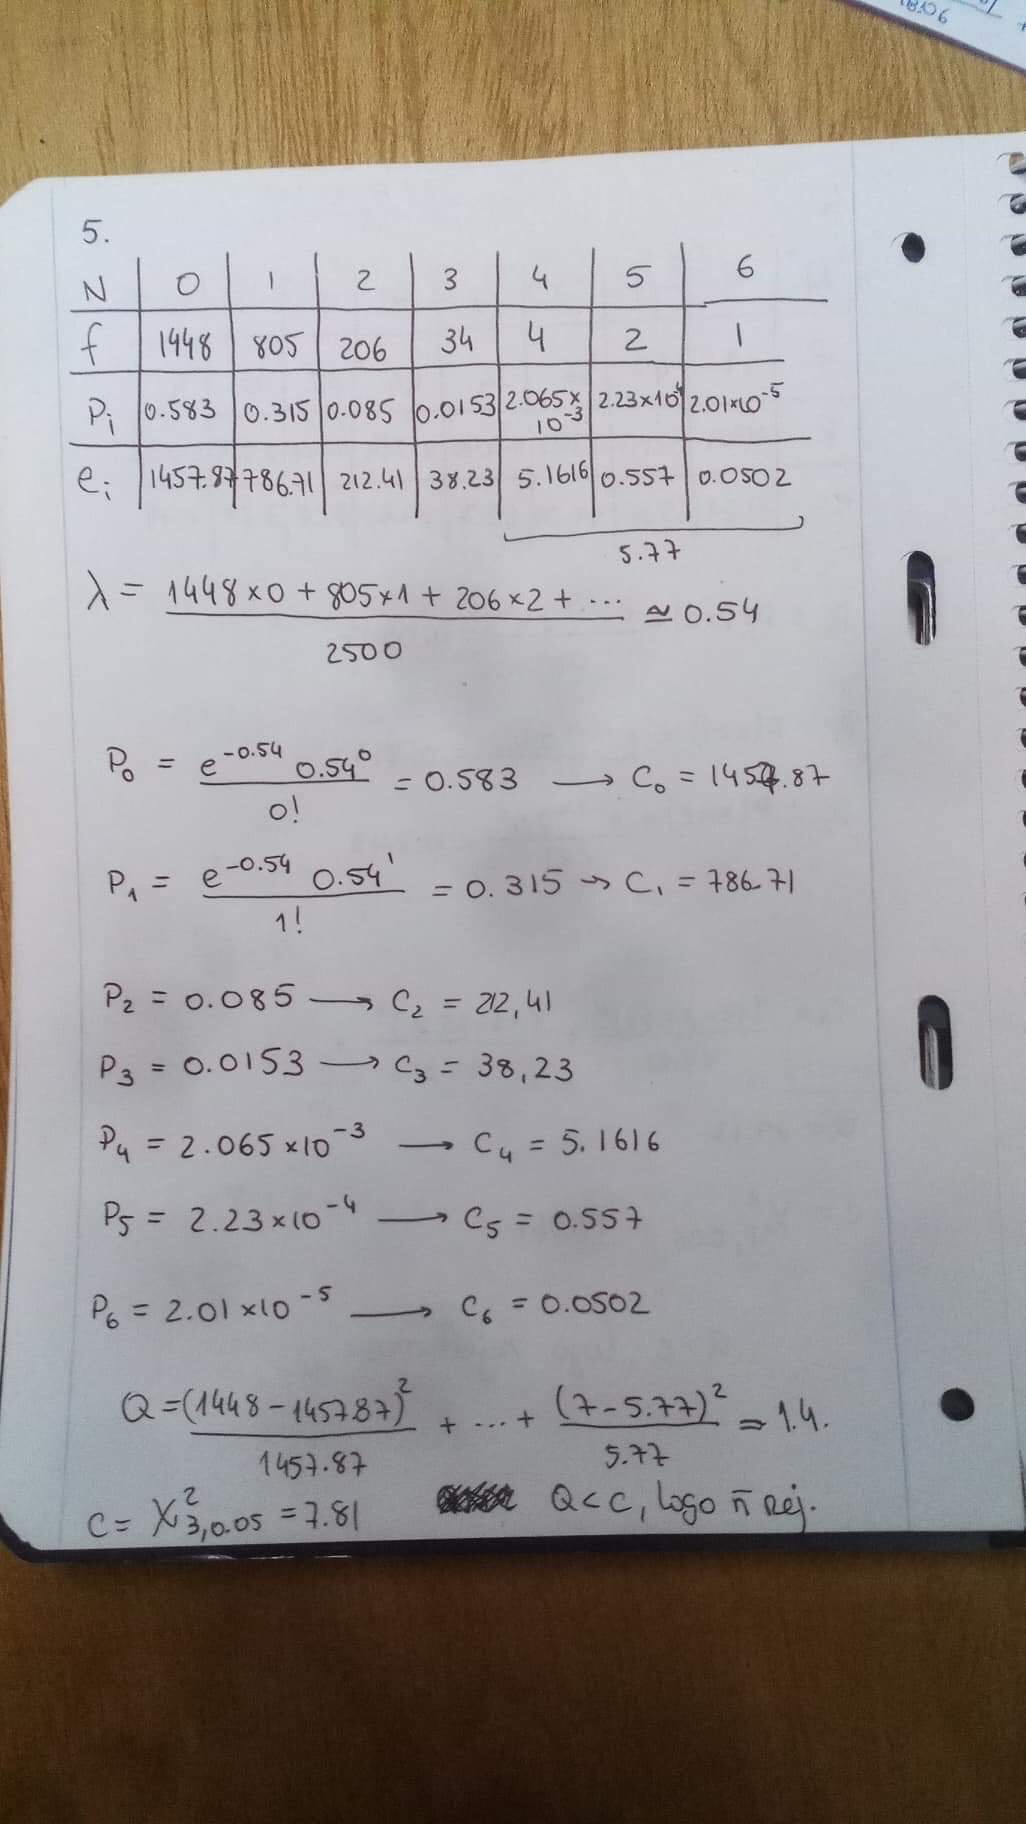 90.81
5.
N | 0 | 1 | 2 | 3 | 4 | 5 | 6
f | 1448 | 805 | 206 | 34 | 4 | 2 | 1
Pi | 0.583 | 0.315 | 0.085 | 0.0153 | 2.065×10⁻³ | 2.23×10⁻⁴ | 2.01×10⁻⁵
ei | 1457.87 | 786.71 | 212.41 | 38.23 | 5.1616 | 0.557 | 0.0502
5.77
λ = (1448×0 + 805×1 + 206×2 + ...) / 2500 ≃ 0.54
P₀ = (e^-0.54 0.54⁰) / 0! = 0.583 → C₀ = 1457.87
P₁ = (e^-0.54 0.54¹) / 1! = 0.315 → C₁ = 786.71
P₂ = 0.085 → C₂ = 212,41
P₃ = 0.0153 → C₃ = 38,23
P₄ = 2.065×10⁻³ → C₄ = 5.1616
P₅ = 2.23×10⁻⁴ → C₅ = 0.557
P₆ = 2.01×10⁻⁵ → C₆ = 0.0502
Q = (1448 - 1457.87)² / 1457.87 + ... + (7 - 5.77)² / 5.77 = 1.4.
C = X²3,0.05 = 7.81 Q < C, logo ñ Rej.